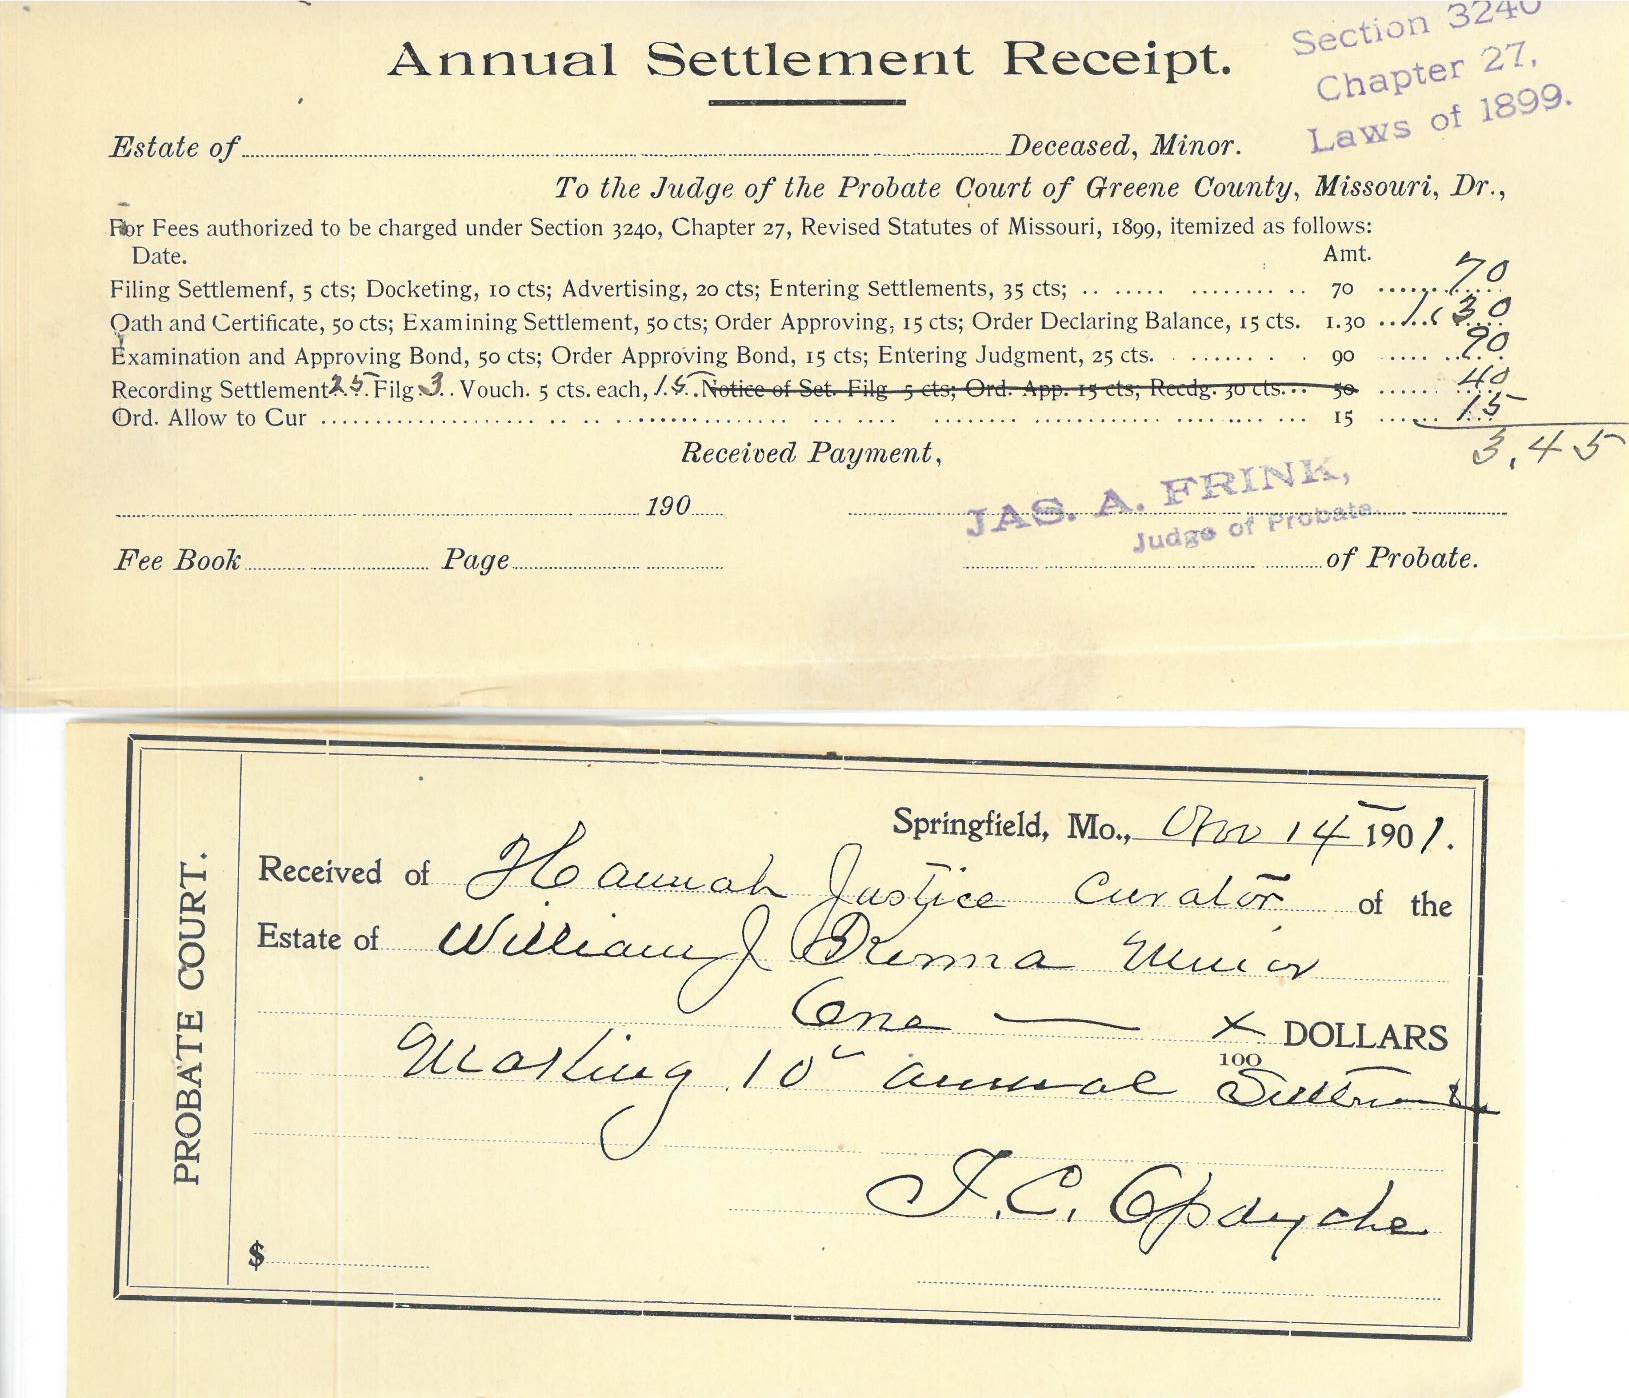 Section 3240
Chapter 27,
Laws of 1899.
Annual Settlement Receipt.
Estate of Deceased, Minor.
To the Judge of the Probate Court of Greene County, Missouri, Dr.,
For Fees authorized to be charged under Section 3240, Chapter 27, Revised Statutes of Missouri, 1899, itemized as follows:
Date. Amt.
Filing Settlement, 5 cts; Docketing, 10 cts; Advertising, 20 cts; Entering Settlements, 35 cts; 70 70
Oath and Certificate, 50 cts; Examining Settlement, 50 cts; Order Approving, 15 cts; Order Declaring Balance, 15 cts. 1.30 1.30
Examination and Approving Bond, 50 cts; Order Approving Bond, 15 cts; Entering Judgment, 25 cts. 90 90
Recording Settlement 25 Filg 3 Vouch. 5 cts. each, 15 Notice of Set. Filg 5 cts; Ord. App. 15 cts; Recdg. 30 cts. 50 40
Ord. Allow to Cur 15 15
3,45
Received Payment,
JAS. A. FRINK,
Judge of Probate.
190
Fee Book Page of Probate.
PROBATE COURT.
Springfield, Mo., Nov 14 1901.
Received of Hannah Justice Curator of the
Estate of William J Minor
One — x/100 DOLLARS
Making 10" annual Settlement
J. C. Opdyche
$